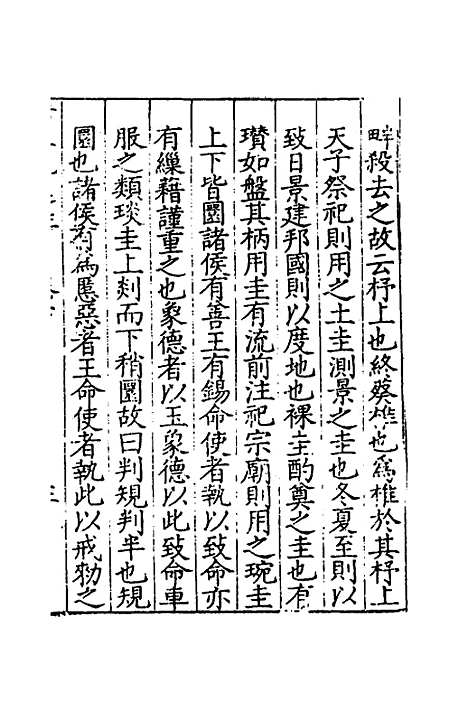 畔殺去之故云杼上也終葵椎也為椎於其杼上
天子祭祀則用之土圭測景之圭也冬夏至則以
致日景建邦國則以度地也祼圭酌奠之圭也有
瓚如盤其柄用圭有流前注祀宗廟則用之琬圭
上下皆圜諸侯有善王有錫命使者執以致命亦
有繅藉謹重之也象德者以玉象德以此致命車
服之類琰圭上剡而下稍圜故曰判規判半也規
圜也諸侯有為慝惡者王命使者執此以戒勑之